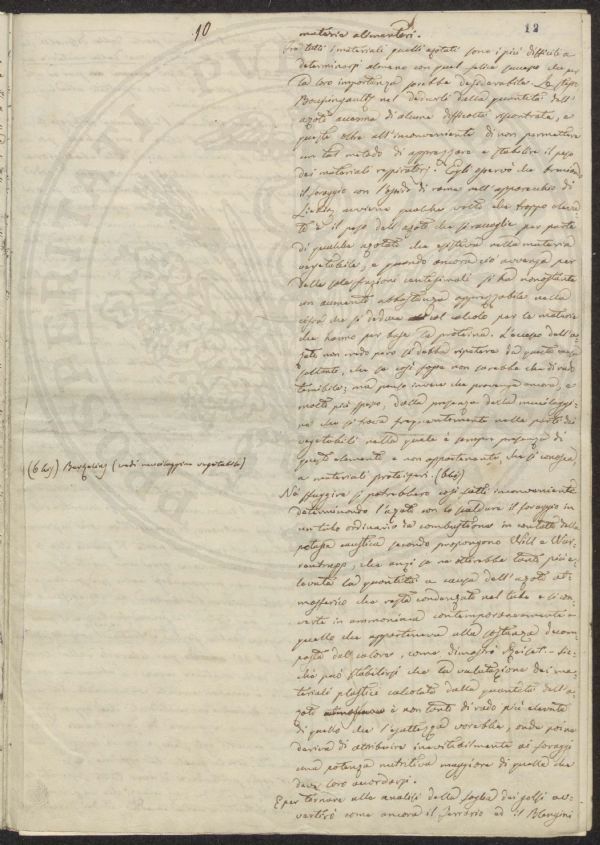 10
12
materie alimentari.
Fra tutti i materiali quelli azotati sono i più difficili a
determinarsi almeno con quel felice successo che per
la loro importanza sarebbe desiderabile. Lo stesso
Boussingault nel dedurli dalla quantità dell'
azoto accenna di alcune difficoltà riscontrate, e
queste oltre all'inconveniente di non permettere
un tal metodo di apprezzare e stabilire il peso
dei materiali respiratori. Egli osservò che bruciando
il foraggio con l'ossido di rame nell'apparecchio di
Liebig avviene qualche volta che troppo eleva-
to è il peso dell'azoto che si raccoglie per parte
di qualche azotato che esisteva nella materia
vegetabile, e quando ancora ciò avvenga per
delle frazioni centesimali si ha nonostante
un aumento abbastanza apprezzabile nella
cifra che si deduce col calcolo per le materie
che hanno per base la proteina. L'eccesso dell'a-
zoto non credo però si debba ripetere da questa causa
soltanto, che se così fosse non sarebbe che di rado
temibile; ma penso invece che provenga ancora, e
molto più spesso, dalla presenza della mucilaggi-
ne che si trova frequentemente nelle parti dei
vegetabili nella quale è sempre presenza di
questo elemento e non appartenente, che si conosca
a materiali proteici. (6 bis)
(6 bis) Berzelius (vedi mucilaggine vegetabile)
Nè sfuggire si potrebbero così fatti inconvenienti
determinando l'azoto con lo scaldare il foraggio in
un tubo ordinario da combustione in contatto della
potassa caustica secondo propongono Will e War-
rentrapp, che anzi se ne otterrebbe tanto più e-
levata la quantità a causa dell'azoto at-
mosferico che resta condensato nel tubo e si con-
verte in ammoniaca contemporaneamente a
quello che apparteneva alla sostanza decom-
posta dal calore, come dimostrò Reiset. - Sic-
chè può stabilirsi che la valutazione dei ma-
teriali plastici calcolata dalla quantità dell'a-
zoto è non tanto di rado più elevata
di quello che l'esattezza vorrebbe, onde poi ne
deriva di attribuire inevitabilmente ai foraggi
una potenza nutritiva maggiore di quella che
deve loro accordarsi.
E per tornare alle analisi della foglia dei gelsi av-
vertirò come ancora il Ferrario ed il Blengini